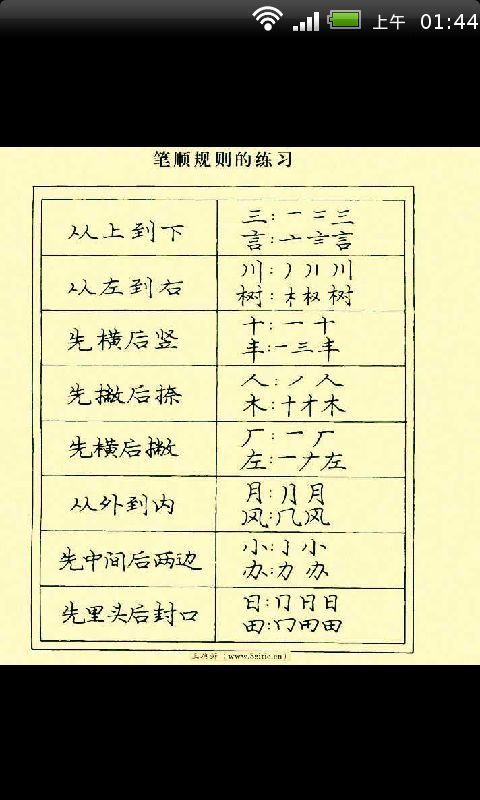 上午 01:44
笔顺规则的练习
从上到下
三:一 二 三
言:亠 言 言
从左到右
川:丿 川 川
树:木 权 树
先横后竖
十:一 十
丰:一 三 丰
先撇后捺
人:丿 人
木:十 才 木
先横后撇
厂:一 厂
左:一 𠂇 左
从外到内
月:⺆ 月
风:几 风
先中间后两边
小:亅 小
办:力 办
先里头后封口
日:冂 日 日
田:冂 田 田